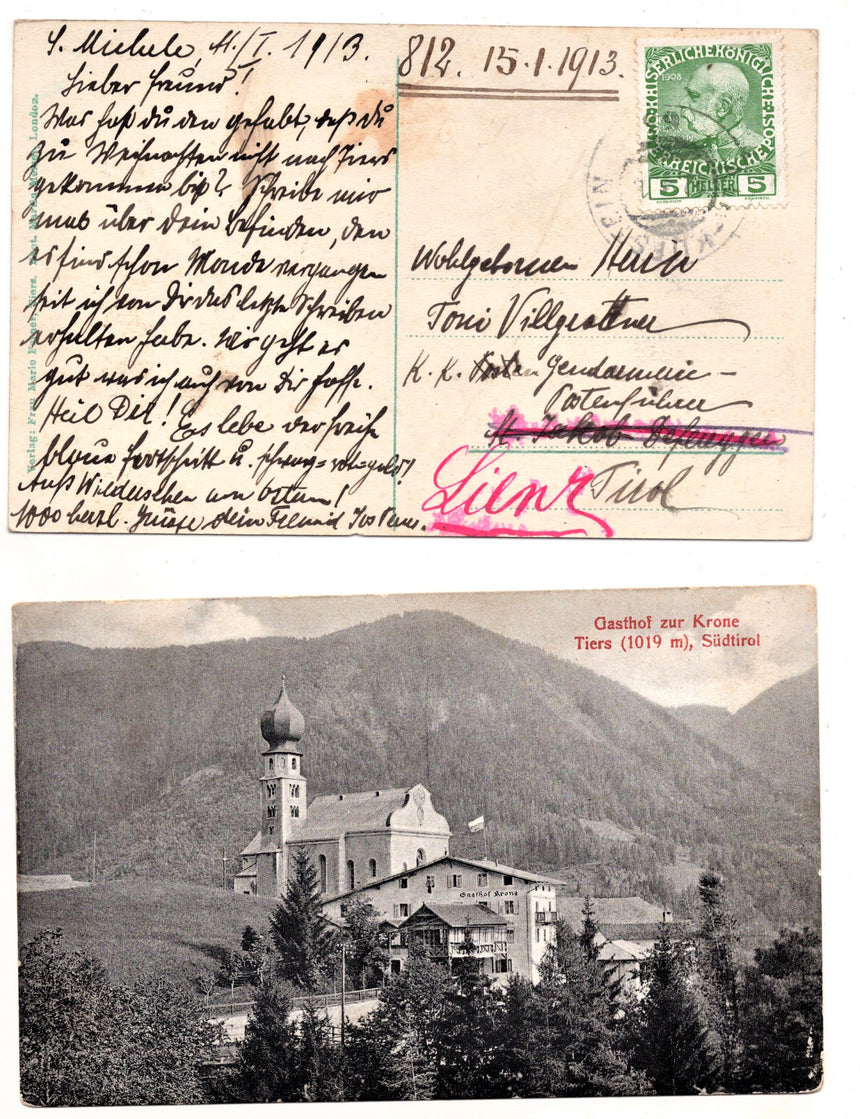 S. Michele, 11./I. 1913.
Lieber Freund!
Was hast du den gehabt, daß du
zu Weihnachten nicht nach Tiers
gekommen bist? Schreibe mir
was über dein befinden, den
es sind schon Monde vergangen
seit ich von Dir das letzte Schreiben
erhalten habe. Mir geht es
gut was ich auch von Dir hoffe.
Heil Dir! Es lebe der freihe
blaue fortschritt u. schwarz=rot=gold!
Auf Wiedersehen um Ostern!
1000 herzl. Grüße dein Freund
Verlag: Frau Marie Tiers. London.
812. 15.1.1913.
KAISERLICHEKÖNIGLICHE
1908
ÖSTERREICHISCHEPOST
5 HELLER 5
Wohlgebornen Herrn
Toni Villgrattner
K. K. Gendarmerie-
Postenführer
St. Jakob Defreggen
Lienz Tirol
Gasthof zur Krone
Tiers (1019 m), Südtirol
Gasthof Krone